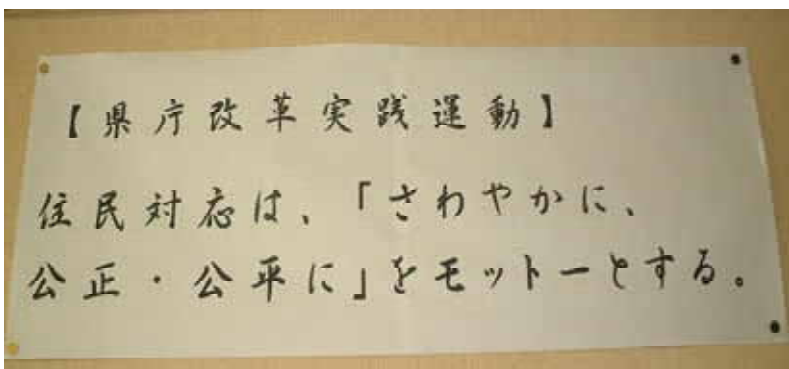 【県庁改革実践運動】
住民対応は、「さわやかに、
公正・公平に」をモットーとする。